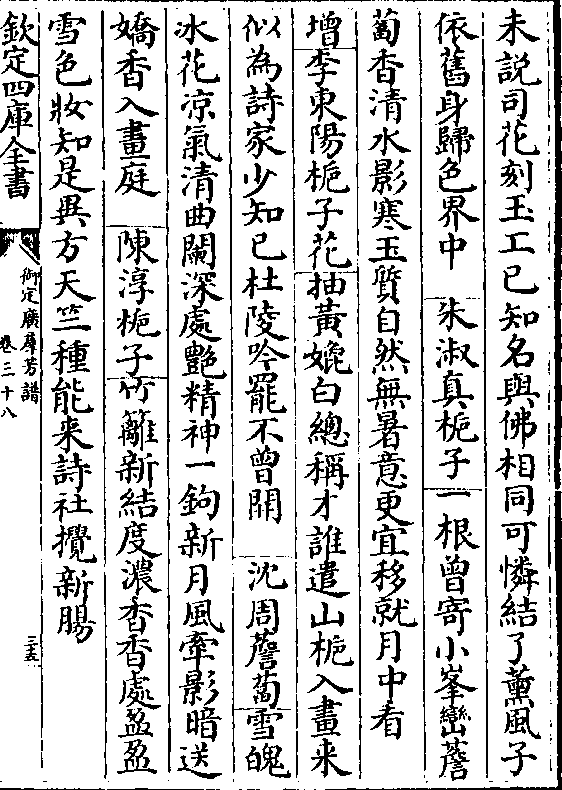 未説司花刻玉工已知名與佛相同可憐結了薰風子
依舊身歸色界中　朱淑真梔子一根曾寄小峯巒薝
蔔香清水影寒玉質自然無暑意更宜移就月中看
增李東陽梔子花抽黃媲白總稱才誰遣山梔入畫来
似為詩家少知己杜陵吟罷不曾開　沈周薝蔔雪魄
冰花凉氣清曲闌深處艷精神一鉤新月風牽影暗送
嬌香入畫庭　陳淳梔子竹籬新結度濃香香處盈盈
雪色妝知是異方天竺種能来詩社攪新腸
欽定四庫全書
御定廣羣芳譜
卷三十八
三五